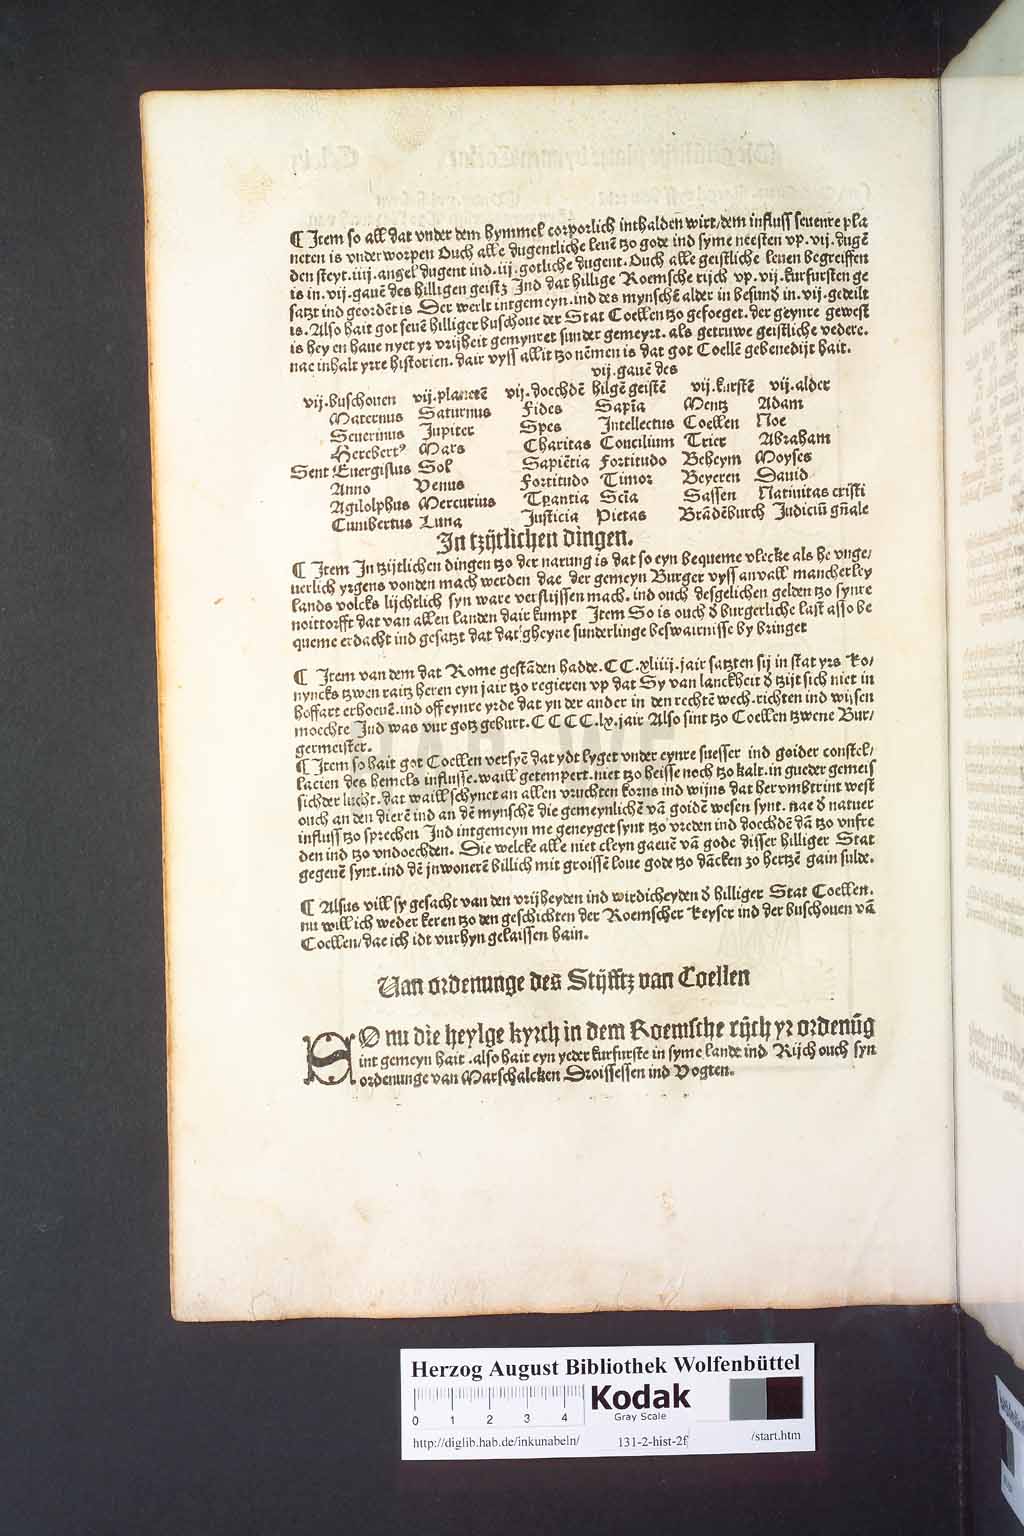 ¶ Item so all dat vnder dem hymmel corporlich inthalden wirt/dem influss seuenre pla
neten is vnder worpen Ouch alle dugentliche leuē tzo gode ind syme neesten vp .vij. dugē
den steyt .iiij. angel dugent ind .iij. gotliche dugent. Ouch alle geistliche leuen begreiffen
is in .vij. gauē des hilligen geistz Ind dat hillige Roemsche rijch vp .vij. kurfursten ge
satzt ind geordēt is Der werlt intgemeyn .ind des mynschē alder in besund̄ in .vij. gedeilt
is. Also hait got seuē hilliger buschoue der Stat Coellen tzo gefoeget. der geynre gewest
is hey en haue nyet yr vrijheit gemynret sunder gemeyrt. als getruwe geistliche vedere.
nae inhalt yrre historien. dair vyss all it tzo nēmen is dat got Coellē gebenedijt hait.
vij. gauē des
vij. buschouen vij. planetē vij. doechdē hilgē geistē vij. kurstē vij. alder
Maternus Saturnus Fides Sapīa Mentz Adam
Seuerinus Jupiter Spes Intellectus Coellen Noe
Herebertꝰ Mars Charitas Concilium Trier Abraham
Sent Euergislus Sol Sapiētia Fortitudo Beheym Moyses
Anno Venus Fortitudo Timor Beyeren Dauid
Agilolphus Mercurius Tp̄antia Scīa Sassen Natiuitas cristi
Cunibertus Luna Justicia Pietas Brādēburch Judiciū gn̄ale
In tzijtlichen dingen.
¶ Item In tzijtlichen dingen tzo der narung is dat so eyn bequeme vlecke als he vnge/
uerlich yrgens vonden mach werden dae der gemeyn Burger vyss anvall mancherley
lands volcks lijchtlich syn ware verslijssen mach. ind ouch desgelichen gelden tzo synre
noittorfft dat van allen landen dair kumpt Item So is ouch d̄ burgerliche last also be
queme erdacht ind gesatzt dat dat gheyne sunderlinge beswairnisse by bringet
¶ Item van dem dat Rome gestādēn hadde .CC.xliiij. jair satzten sij in stat yrs Ko/
nyncks tzwen raitz heren eyn jair tzo regieren vp dat Sy van lanckheit d̄ tzijt sich niet in
hoffart erhoeuē .ind off eynre yrde dat yn der ander in den rechtē wech .richten ind wijsen
moechte Ind was vur gotz geburt .CCCC.lx. jair Also sint tzo Coellen tzwene Bur/
germeister.
¶ Item so hait got Coellen versyē dat ydt lyget vnder eynre suesser ind goider constel/
lacien des hemels influsse .waill getempert .niet tzo heisse noch tzo kalt .in gueder gemeis
sichder lucht .dat waill schynet an allen vruchten korns ind wijns dat her vmbtrint west
ouch an den dierē ind an dē mynschē die gemeynlichē vā goidē wesen synt. nae d̄ natuer
influss tzo sprechen Ind intgemeyn me geneyget synt tzo vreden ind doechdē dā tzo vnfre
den ind tzo vndoechden. Die welcke alle niet cleyn gaeuē vā gode disser hilliger Stat
gegeuē synt .ind dē jnwonerē billich mit groissē loue gode tzo dācken zo hertzē gain sulde.
¶ Alsus vill sy gesacht van den vrijheyden ind wirdicheyden d̄ hilliger Stat Coellen.
nu will ich weder keren tzo den geschichten der Roemscher Keyser ind der buschouen vā
Coellen/dae ich idt vurhyn gelaissen hain.
Uan ordenunge des Stijfftz van Coellen
SO nu die heylge kyrch in dem Roemsche rijch yr ordenūg
int gemeyn hait .also hait eyn yeder kurfurste in syme lande ind Rijch ouch syn
ordenunge van Marschalcken Droissessen ind Vogten.
Herzog August Bibliothek Wolfenbüttel
0 1 2 3 4
Kodak
Gray Scale
http://diglib.hab.de/inkunabeln/ 131-2-hist-2f /start.htm